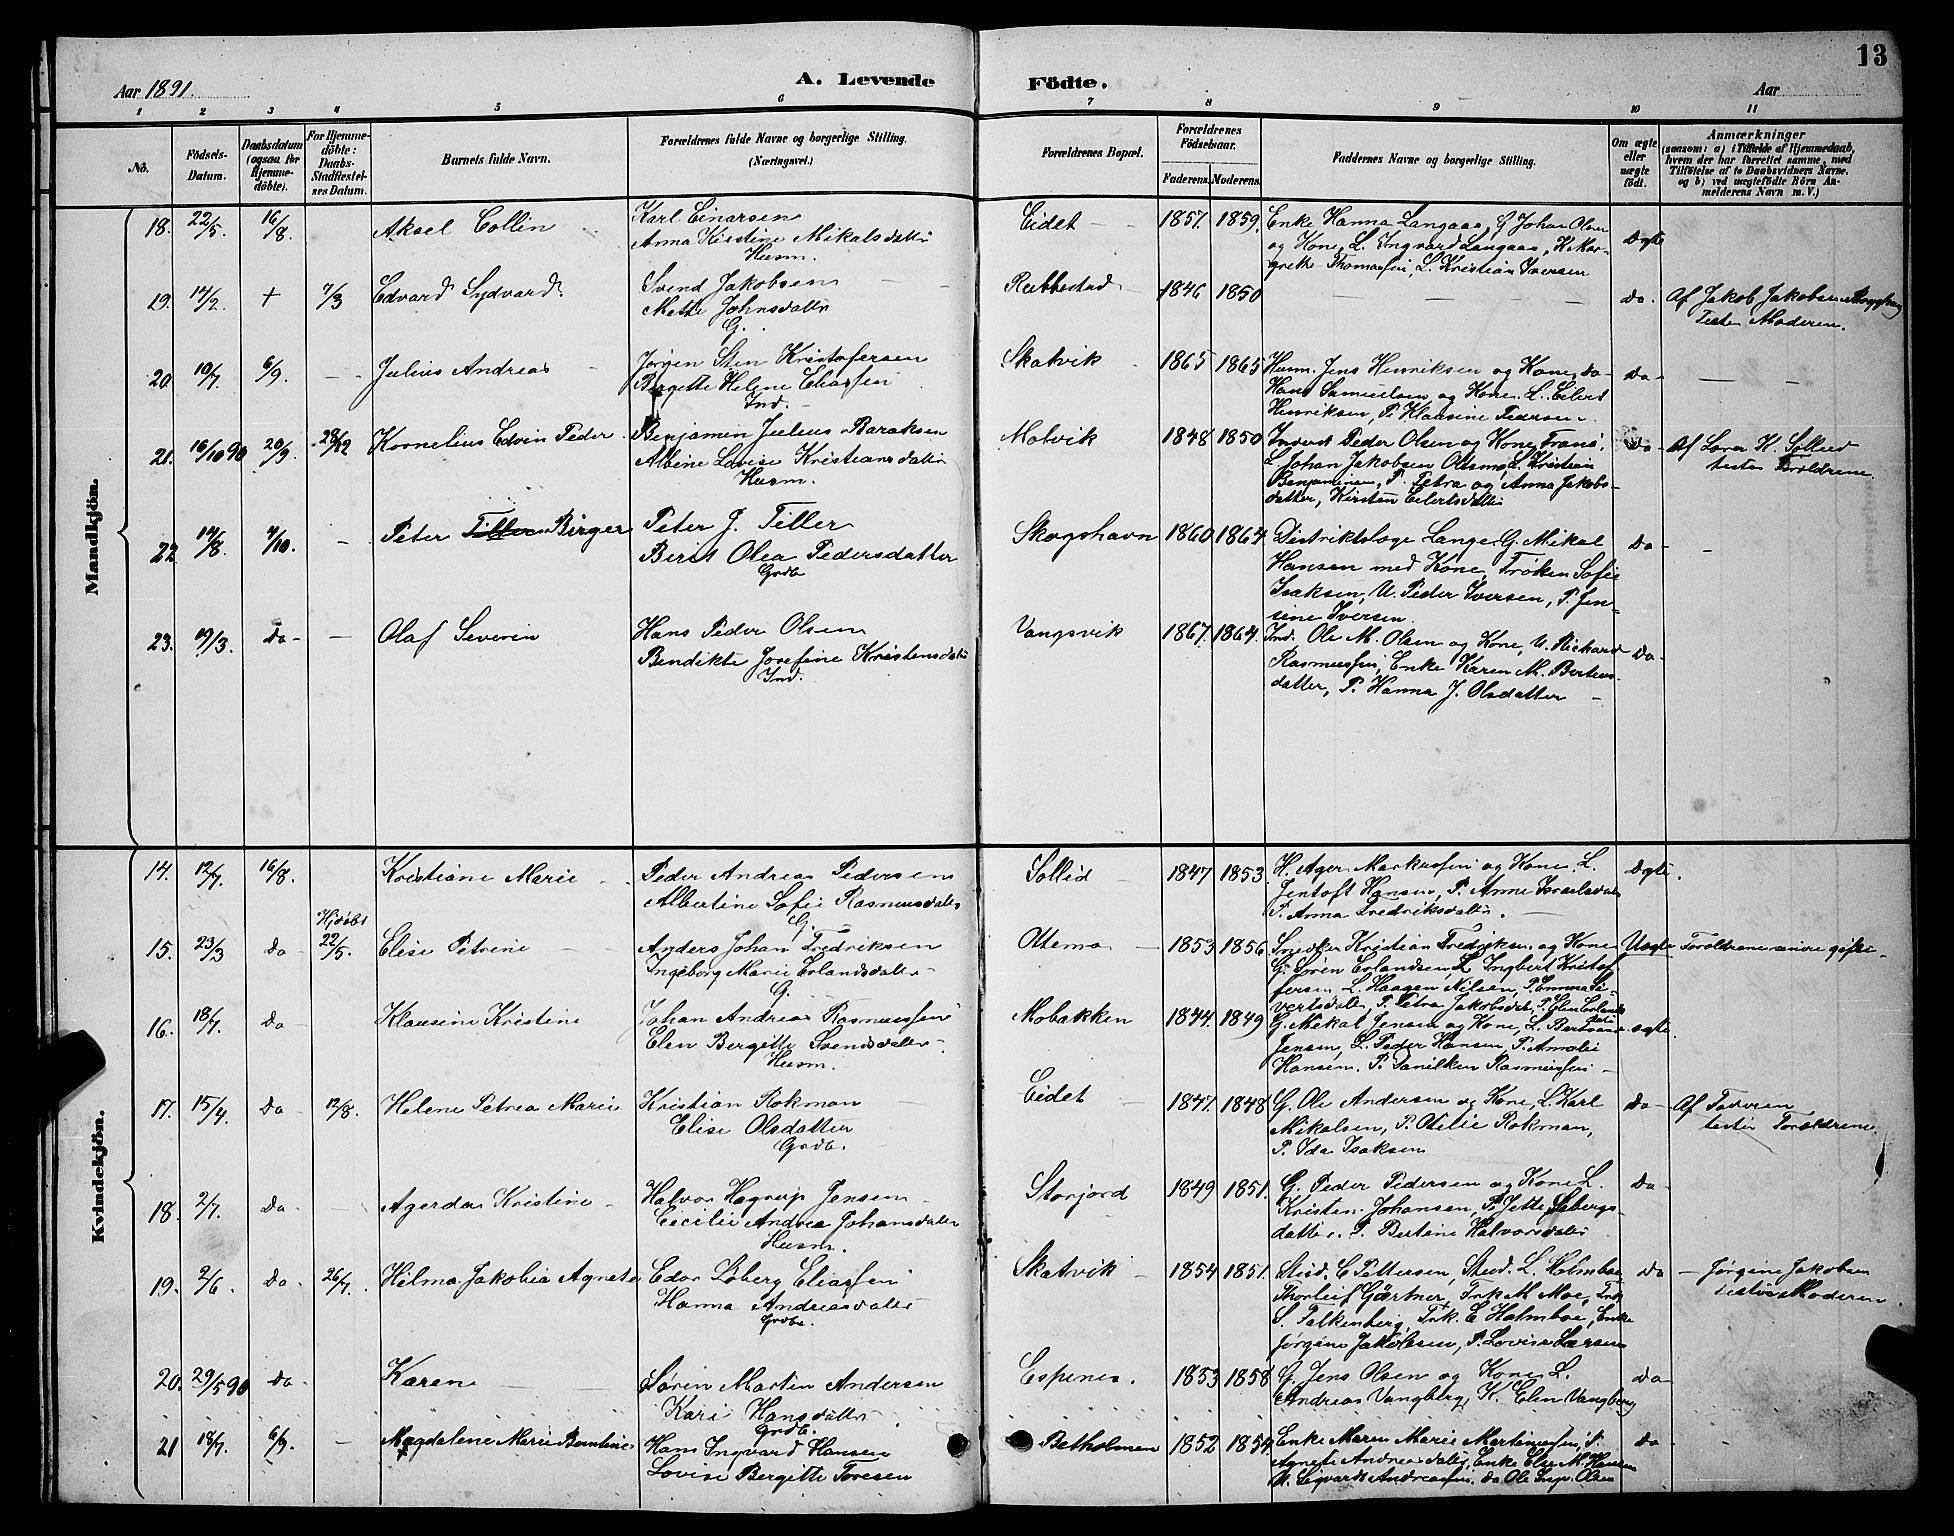 13
Aar 1891.
A. Levende Födte.
Aar
1 2 3 4 5 6 7 8 9 10 11
No.
Födsels-Datum.
Daabsdatum (ogsaa for Hjemme-döbte).
For Hjemme-döbte: Daabs-Stadfæstel-ses Datum.
Barnets fulde Navn.
Forældrenes fulde Navne og borgerlige Stilling.
(Næringsvei.)
Forældrenes Bopæl.
Forældrenes Födselsaar.
Faderens. Moderens.
Faddernes Navne og borgerlige Stilling.
Om ægte eller uægte födt.
Anmærkninger
(saasom: a) i Tilfælde af Hjemmedaab, hvem der har forrettet samme, med Tilföielse af to Daabsvidners Navne. og b) ved uægtefödte Börn An-melderens Navn m. V.)
Mandkjön.
18. 22/5 16/8. Aksel Collin
Karl Einarsen
Anna Kirstine Mikalsdatter
Husm.
Eidet 1857. 1859.
Enke Hanna Langaas, G Johan Olsen
og Kone, L. Ingvard Langaas, K. Mar-
grethe Thomassen, L. Kristian Iversen
Ægte
19. 14/2. + 7/3 Edvard Sydvard
Svend Jakobsen
Mette Johnsdatter
G.
Rubbestad 1846 1850 Do.
Af Jakob Jakobsen
Test. Moderen.
20 10/7. 6/9. Julius Andreas
Jørgen Sten Kristofersen
Birgitte Helene Eliassen
Ind.
Skatvik 1865 1865
Husm. Jens Henriksen og Kone, do
Hans Samuelsen og Kone L. Eilert
Henriksen, P. Klausine Pedersen
Do
21. 16/10 90 20/9. 28/12 Kornelius Edvin Peder
Benjamin Julius Baraksen
Albine Lovise Kristiansdatter
Husm.
Molvik 1848 1850
Inderst Peder Olsen og Kone Frans.
L. Johan Jakobsen Ottemo, L. Kristian
Benjaminsen, P. Petra og Anna Jakobs-
datter, Kirsten Eilertsdatter
Do
Af Lærer K. Sollied
testes Forældrene
22 14/8. 4/10. Peter Tiller Birger
Peter J. Tiller
Berit Olea Pedersdatter
Grdb
Skogshavn 1860 1864
Distriktslæge Lange G. Mikal
Hansen med Kone, Frøken Sofie
Isaksen, U. Peder Iversen, P. Jen-
sine Iversen.
Do
23. 19/3. Do Olaf Severin
Hans Peder Olsen
Bendikte Josefine Kristensdatter
Ind.
Vangsvik 1867. 1864.
Ind. Ole M. Olsen og Kone, U. Richard
Rasmussen, Enke Karen M. Bertens-
datter, P. Hanna J. Olsdatter
Do
Kvindekjön.
14. 12/7. 16/8. Kristiane Marie
Peder Andreas Pedersen
Albertine Sofie Rasmusdatter
G.
Sollid 1847 1853.
H. Ager Markussen og Kone, L.
Jentoft Hansen, P. Anne Israelsdatter
P. Anna Fredriksdatter.
Ægte.
15. 23/3 Do Hjdøbt 22/5. Elise Petrine
Anders Johan Fredriksen
Ingeborg Marie Erlandsdatter
G.
Ottemo 1853 1856
Snedker Kristian Fredriksen og Kone
G. Søren Erlandsen, L Ingbert Kristof-
fersen L. Haagen Nilsen, P. Emma Si-
vertsdatter, P. Petra Jakobsdt. P. Elen Erlands
datter
Uægte Forældrene senere gifte.
16. 18/7. Do Klausine Kristine
Johan Andreas Rasmussen
Elen Bergitte Svendsdatter
Husm.
Mobakken 1844. 1849
G. Mikal Jensen og Kone, L. Berteus
Jensen, L. Peder Hansen, P. Amalie
Hansen. P. Danilken Rasmussen
ægte.
17. 15/4. Do 12/8. Helene Petrea Marie
Kristian Rokman
Elise Olsdatter
Grdb.
Eidet 1847. 1848
G. Ole Andersen og Kone, L. Karl
Mikalsen, P. Otelie Rokman,
P. Ida Isaksen
Do
Af Faderen
testes Forældrene.
18. 2/7. Do Agerda Kristine
Halvor Hagrup Jensen
Cecilie Andrea Johansdatter
Husm.
Storjord 1849 1851.
G. Peder Pedersen og Kone L.
Kristen Johansen, P. Jette Sebergs-
datter, P. Bertine Halvorsdatter
Do
19. 2/6. Do 26/7. Hilma Jakobia Agnete
Edor Løberg Eliassen
Hanna Andreasdatter
Grdb.
Skatvik 1854 1851.
Stud. C Pettersen, Stud. L. Holmboe
Thorleif Gærtner, Frk M Moe, Frk
S. Falkenberg, Frk. E Holmboe, Enke
Jørgine Jakobsen, P. Lovise Larsen
Do
Jørgine Jakobsen
Testes Moderen.
20. 29/5 90 Do Karen
Søren Martin Andersen
Kari Hansdatter
Grdb.
Espenes. 1853 1858
G. Jens Olsen og Kone L.
Andreas Vangberg, K. Elen Vangberg
Do
21 18/7. 6/9. Magdalene Marie Berntine
Hans Ingvard Hansen
Lovise Bergitte Toresen
Betholmen 1852 1854.
Enke Maren Marie Martinussen, P.
Agnete Andreasdatter, Enke Else M. Hansen
U. Sigvard Andreassen, Do Ole Ingv. Olsen
Do